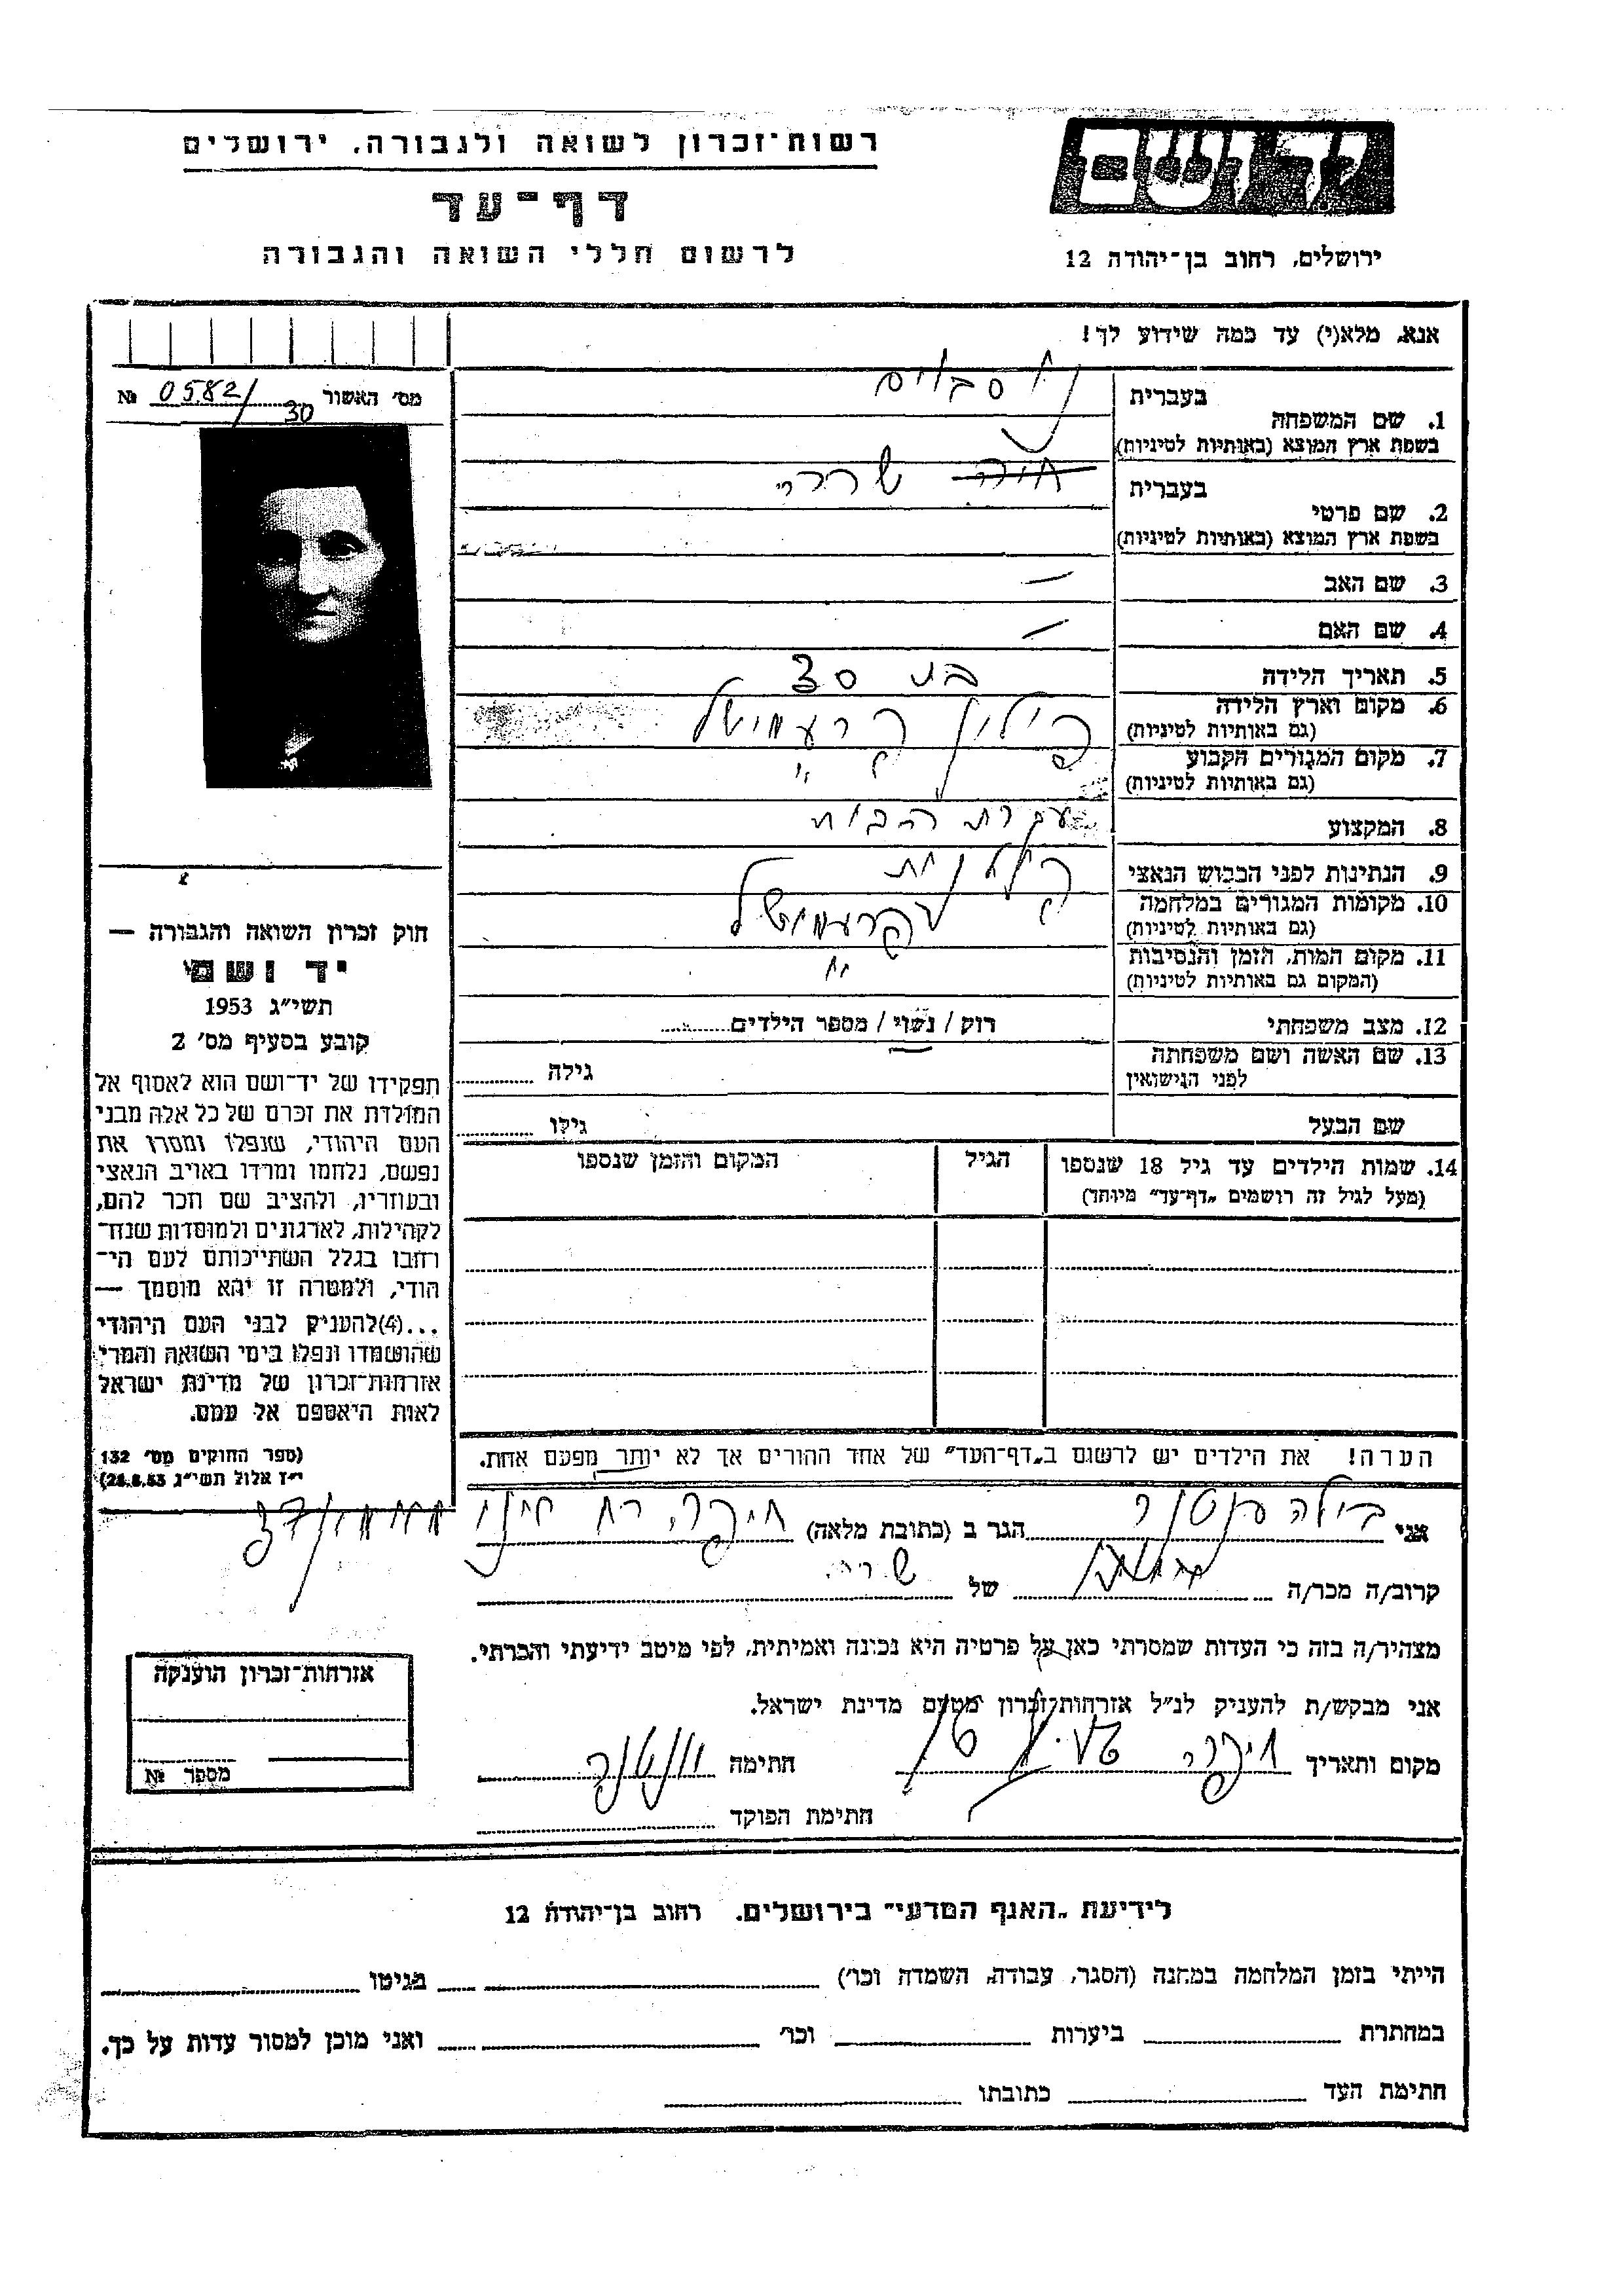 רשות־זכרון לשואה ולגבורה, ירושלים
דף־עד
לרשום חללי השואה והגבורה
יד ושם
ירושלים, רחוב בן־יהודה 12
אנא, מלא(י) עד כמה שידוע לך!
מס׳ האשור 0582/30 №
בעברית
1. שם המשפחה
בשפת ארץ המוצא (באותיות לטיניות)
בעברית חיה שרה
2. שם פרטי
בשפת ארץ המוצא (באותיות לטיניות)
3. שם האב —
4. שם האם —
5. תאריך הלידה בת 30
6. מקום וארץ הלידה פולין פרעמישל
(גם באותיות לטיניות)
7. מקום המגורים הקבוע "
(גם באותיות לטיניות)
8. המקצוע עקרת הבית
9. הנתינות לפני הכבוש הנאצי פולנית
10. מקומות המגורים במלחמה פרעמישל
(גם באותיות לטיניות)
11. מקום המות, הזמן והנסיבות "
(המקום גם באותיות לטיניות)
12. מצב משפחתי רוק / נשוי / מספר הילדים
13. שם האשה ושם משפחתה גילה
לפני הנישואין
שם הבעל גילו
14. שמות הילדים עד גיל 18 שנספו הגיל המקום והזמן שנספו
(מעל לגיל זה רושמים „דף־עד” מיוחד)
חוק זכרון השואה והגבורה —
יד ושם
תשי״ג 1953
קובע בסעיף מס׳ 2
תפקידו של יד־ושם הוא לאסוף אל
המולדת את זכרם של כל אלה מבני
העם היהודי, שנפלו ומסרו את
נפשם, נלחמו ומרדו באויב הנאצי
ובעוזריו, ולהציב שם וזכר להם,
לקהילות, לארגונים ולמוסדות שנח־
רחבו בגלל השתייכותם לעם הי־
הודי, ולמטרה זו יהא מוסמך —
...(4)להעניק לבני העם היהודי
שהושמדו ונפלו בימי השואה והמרי
אזרחות־זכרון של מדינת ישראל
לאות היאספם אל עמם.
(ספר החוקים מס׳ 132
י״ז אלול תשי״ג 28.8.53)
הערה! את הילדים יש לרשום ב„דף־העד” של אחד ההורים אך לא יותר מפעם אחת.
אני בילה הגר ב (כתובת מלאה) חיפה, רח
קרוב/ה מכר/ה של שרה
מצהיר/ה בזה כי העדות שמסרתי כאן על פרטיה היא נכונה ואמיתית, לפי מיטב ידיעתי והכרתי.
אני מבקש/ת להעניק לנ״ל אזרחות־זכרון מטעם מדינת ישראל.
מקום ותאריך חיפה חתימה
חתימת הפוקד
אזרחות־זכרון הוענקה
מספר №
לידיעת „האגף המדעי” בירושלים. רחוב בן־יהודה 12
הייתי בזמן המלחמה במחנה (הסגר, עבודה, השמדה וכו׳) בגיטו
במחתרת ביערות וכו׳ ואני מוכן למסור עדות על כך.
חתימת העד כתובתו